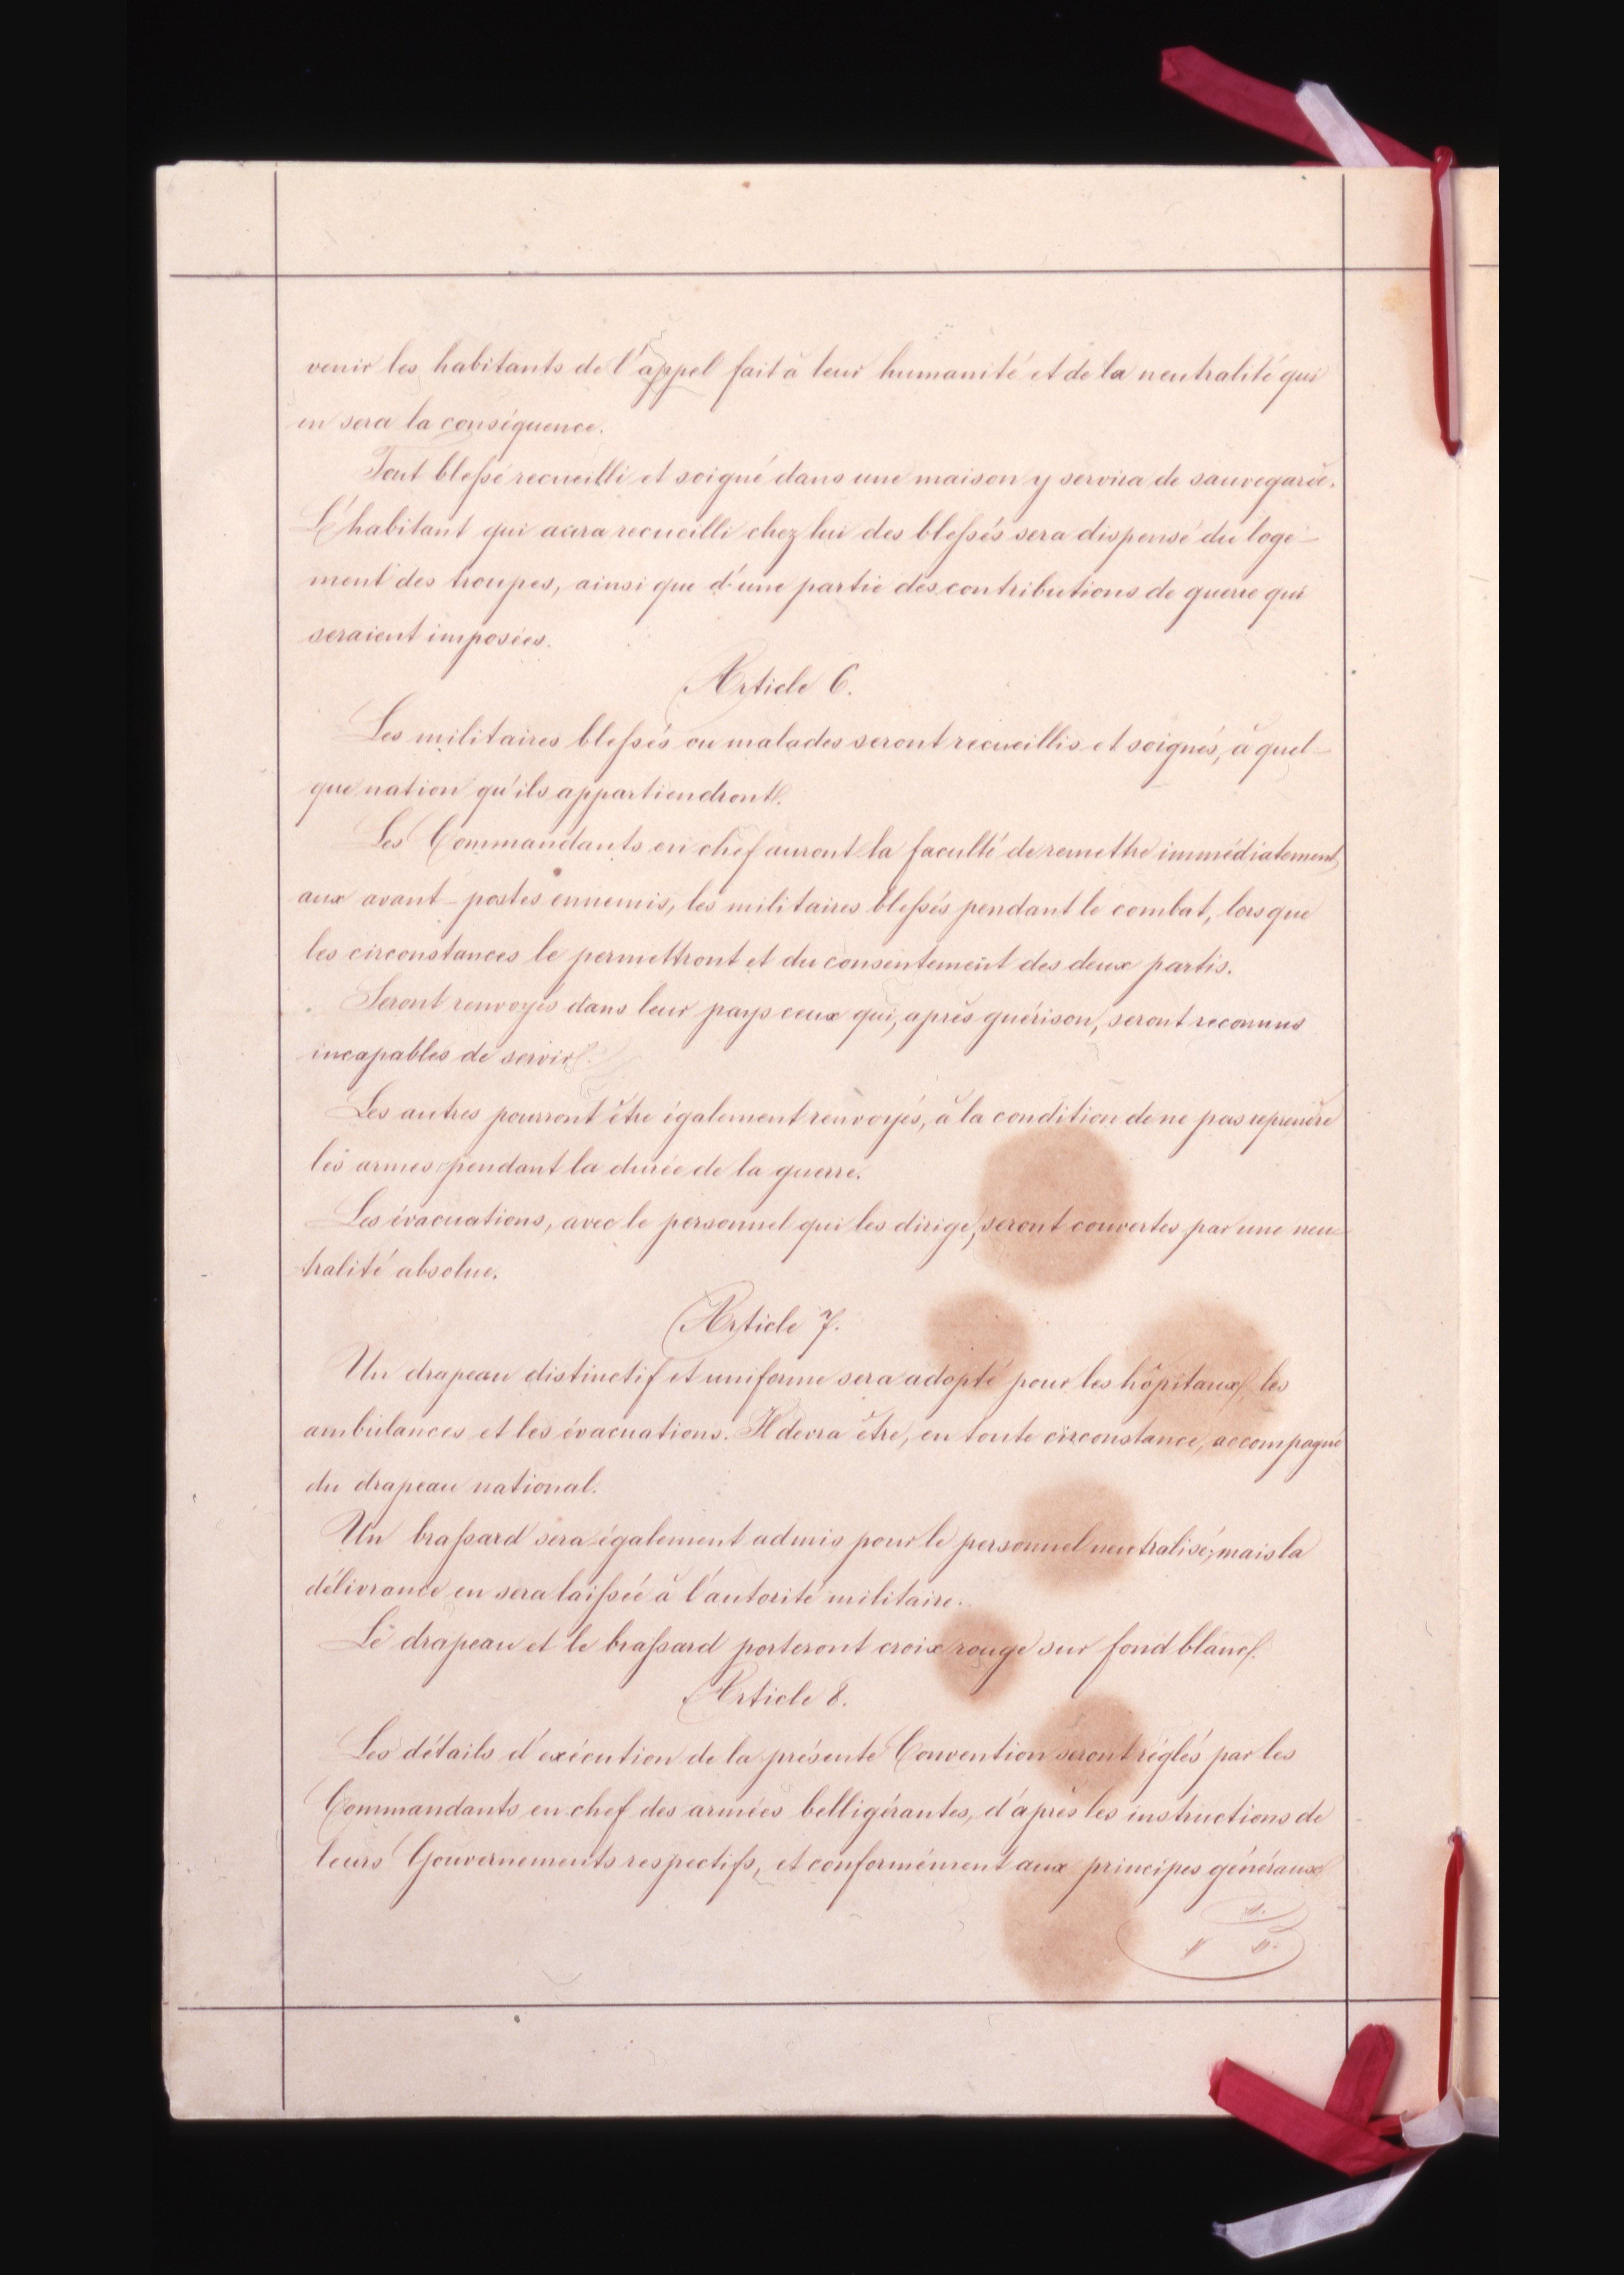 venir les habitants de l'appel fait à leur humanité et de la neutralité qui
en sera la conséquence.
Tout blessé recueilli et soigné dans une maison y servira de sauvegarde.
L'habitant qui aura recueilli chez lui des blessés sera dispensé du loge-
ment des troupes, ainsi que d'une partie des contributions de guerre qui
seraient imposées.
Article 6.
Les militaires blessés ou malades seront recueillis et soignés, à quel-
que nation qu'ils appartiendront.
Les Commandants en chef auront la faculté de remettre immédiatement,
aux avant-postes ennemis, les militaires blessés pendant le combat, lorsque
les circonstances le permettront et du consentement des deux partis.
Seront renvoyés dans leur pays ceux qui, après guérison, seront reconnus
incapables de servir.
Les autres pourront être également renvoyés, à la condition de ne pas reprendre
les armes pendant la durée de la guerre.
Les évacuations, avec le personnel qui les dirige, seront couvertes par une neu-
tralité absolue.
Article 7.
Un drapeau distinctif et uniforme sera adopté pour les hôpitaux, les
ambulances et les évacuations. Il devra être, en toute circonstance, accompagné
du drapeau national.
Un brassard sera également admis pour le personnel neutralisé; mais la
délivrance en sera laissée à l'autorité militaire.
Le drapeau et le brassard porteront croix rouge sur fond blanc.
Article 8.
Les détails d'exécution de la présente Convention seront réglés par les
Commandants en chef des armées belligérantes, d'après les instructions de
leurs Gouvernements respectifs, et conformément aux principes généraux